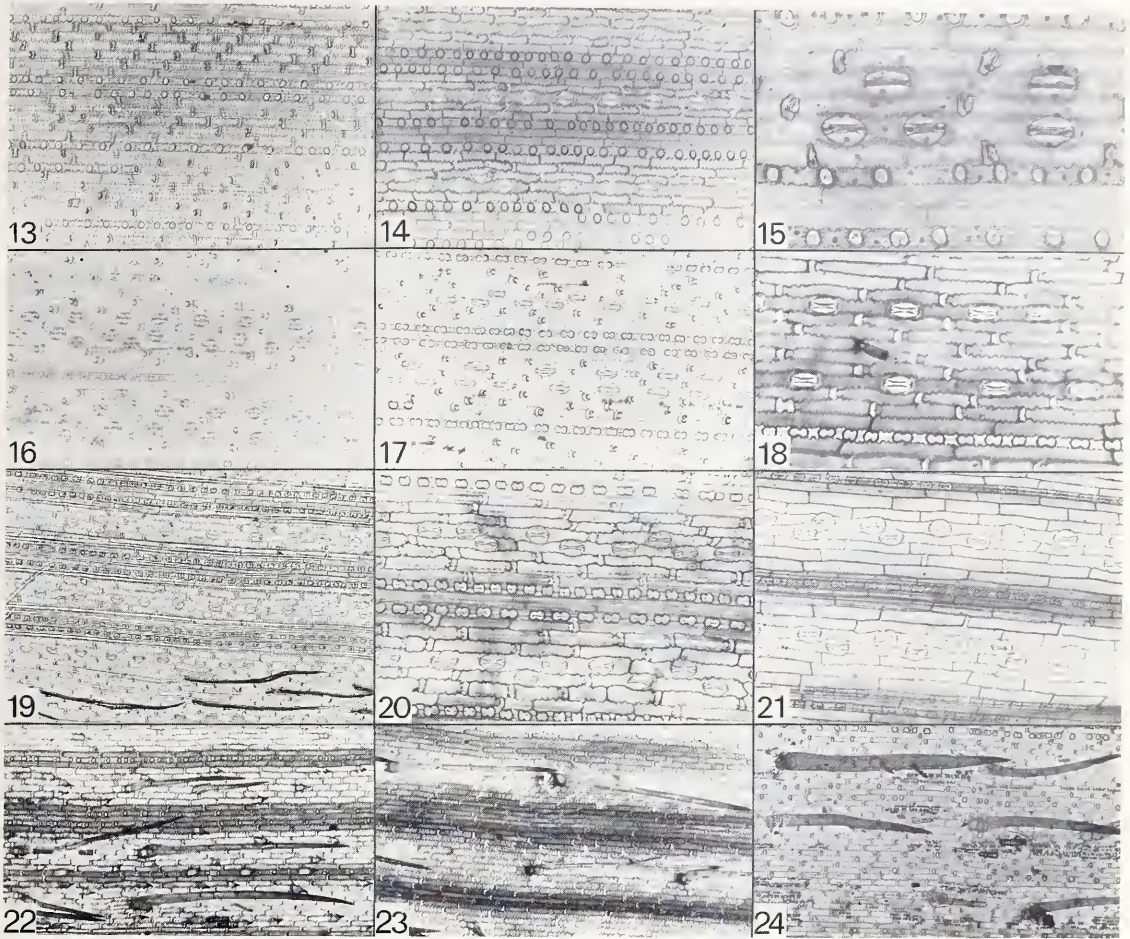 13
14
15
16
17
18
19
20
21
22
23
24